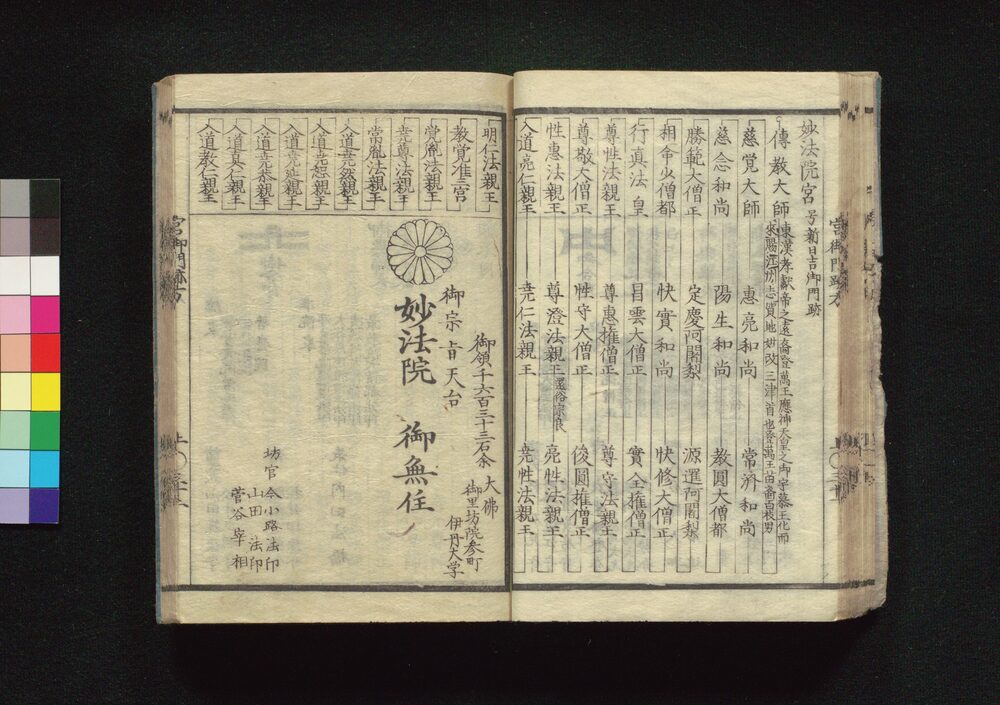 妙法院宮 号新日吉御門跡
傳教大師 東漢孝獻帝之遠裔登萬王應神天皇之御宇慕王化而
來賜江州志賀地姓改三津首也登萬王苗裔百枝男
慈覺大師 惠亮和尚 常濟和尚
慈念和尚 陽生和尚 教圓大僧都
勝範大僧正 定慶阿闍梨 源選阿闍梨
相命少僧都 快實和尚 快修大僧正
行真法皇 昌雲大僧正 實全権僧正
尊性法親王 尊惠権僧正 尊守法親王
尊教大僧正 性守大僧正 俊圓権僧正
性惠法親王 尊澄法親王 還俗宗良 亮性法親王
入道亮仁親王 尭仁法親王 尭性法親王
明仁法親王
教覚准三宮
覚胤法親王
尭尊法親王
常胤法親王
入道尭然親王
入道尭恕親王
入道尭延親王
入道尭恭親王
入道真仁親王
入道教仁親王
御領千六百三十三石余
大佛
御里坊院参町
伊丹大学
御宗旨天台
妙法院 御無住
坊官 今小路法印
山田法印
菅谷宰相
宮御門跡方
宮御門跡方